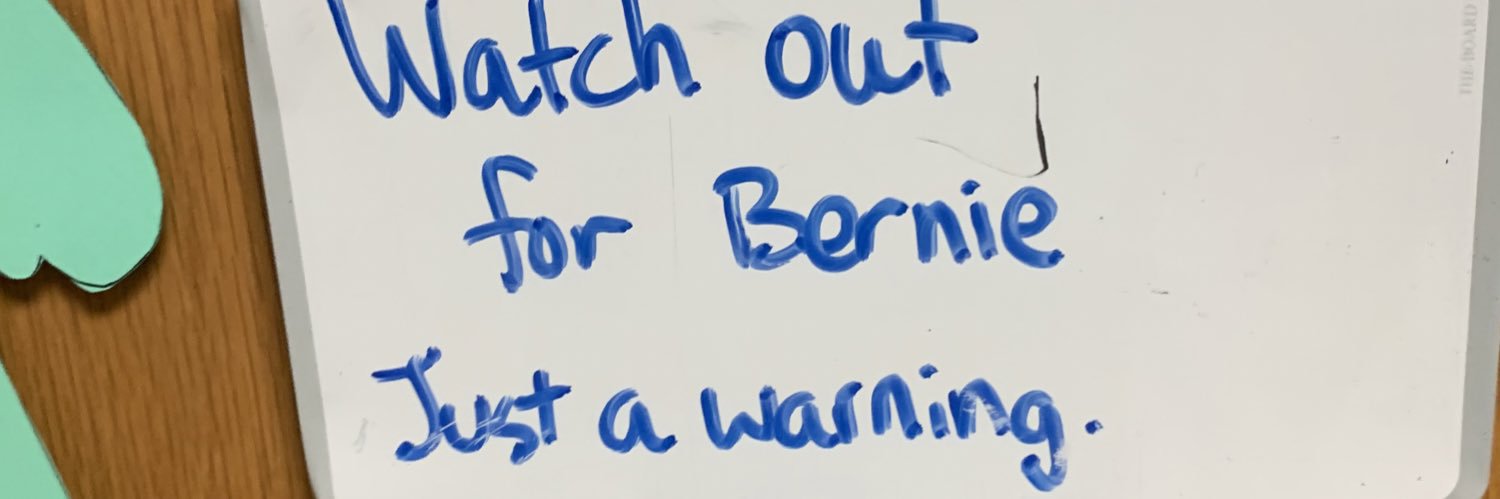 Watch out
for Bernie
Just a warning.
THE BOARD